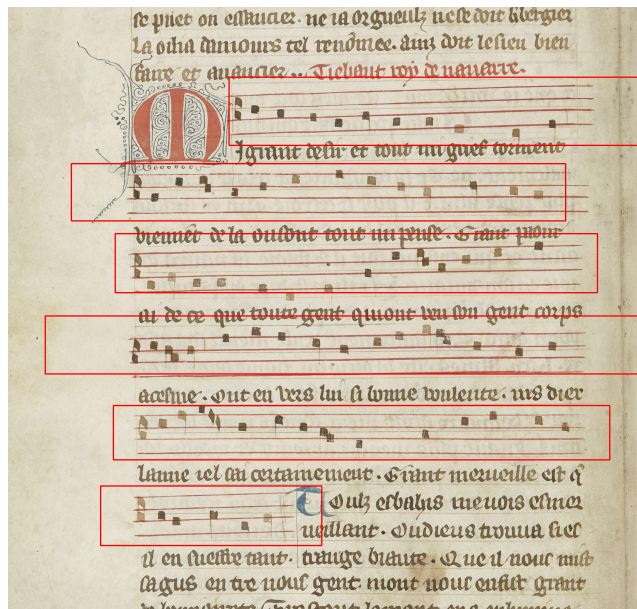 se prïet on essaucier. ne ia orgueulz ne se doit lbergier
la o iha damours tel renomee. ainz doit le sien bien
faire et auancier.. Tiebaut roy de nauarre.
M Igrant desir et tout mi grief torment
viennēt de la ou sont tout mi pense. Grant paour
ai de ce que toute gent qui ont veu son gent corps
acesme. Ont en vers lui si bonne voulente. nis dier
lanne iel sai certainement. Grant merueille est q̄
il en sueffre tant.
Toulz esbahis me vois esmer
ueillant. Ou dieus trouua si es
trange biaute. Que il nous mist
sa gus en tre nous gent. mout nous en fist grant